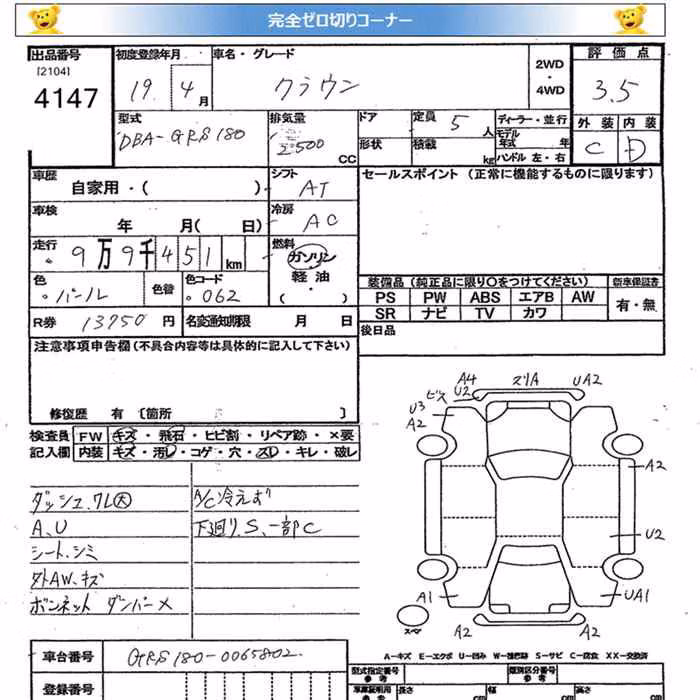 完全ゼロ切りコーナー
出品番号 初度登録年月 車名・グレード 2WD ・ 4WD 評価点
[2104]
4147 19 4月 クラウン 3.5
型式 排気量 ドア 定員 5人 ディーラー・並行 外装 内装
DBA-GRS180 2500 CC 形状 積載 kg モデル年式 年 ハンドル 左・右 C D
車歴 自家用・( ) シフト AT セールスポイント (正常に機能するものに限ります)
車検 年 月( 日) 冷房 AC
走行 9万9千451km 燃料 ガソリン
軽油
・( )
色 パール 色替 色コード 062 装備品(純正品に限り○をつけてください) 新車保証書
PS PW ABS エアB AW 有・無
SR ナビ TV カワ
R券 13750円 名変通知期限 月 日 後日品
注意事項申告欄(不具合内容等は具体的に記入して下さい)
修復歴 有 [箇所 ]
検査員 FW キズ・飛石・ヒビ割・リペア跡・×要
記入欄 内装 キズ・汚レ・コゲ・穴・スレ・キレ・破レ
ダッシュ.ワレ大 A/C冷えず
A,U 下廻りS、一部C
シート.シミ
外AW、キズ
ボンネット ダンパー×
A4 U2 ズリA UA2
ビス
U3
A2
A2
U2
A1 UA1
スペア A2 A2
A-キズ E-エクボ U-凹み W-補修跡 S-サビ C-腐食 XX-交換済
車台番号 GRS180-0065802
型式指定番号 参考 類別区分番号 参考
登録番号 車庫証明用 参考 長さ cm 幅 cm 高さ cm